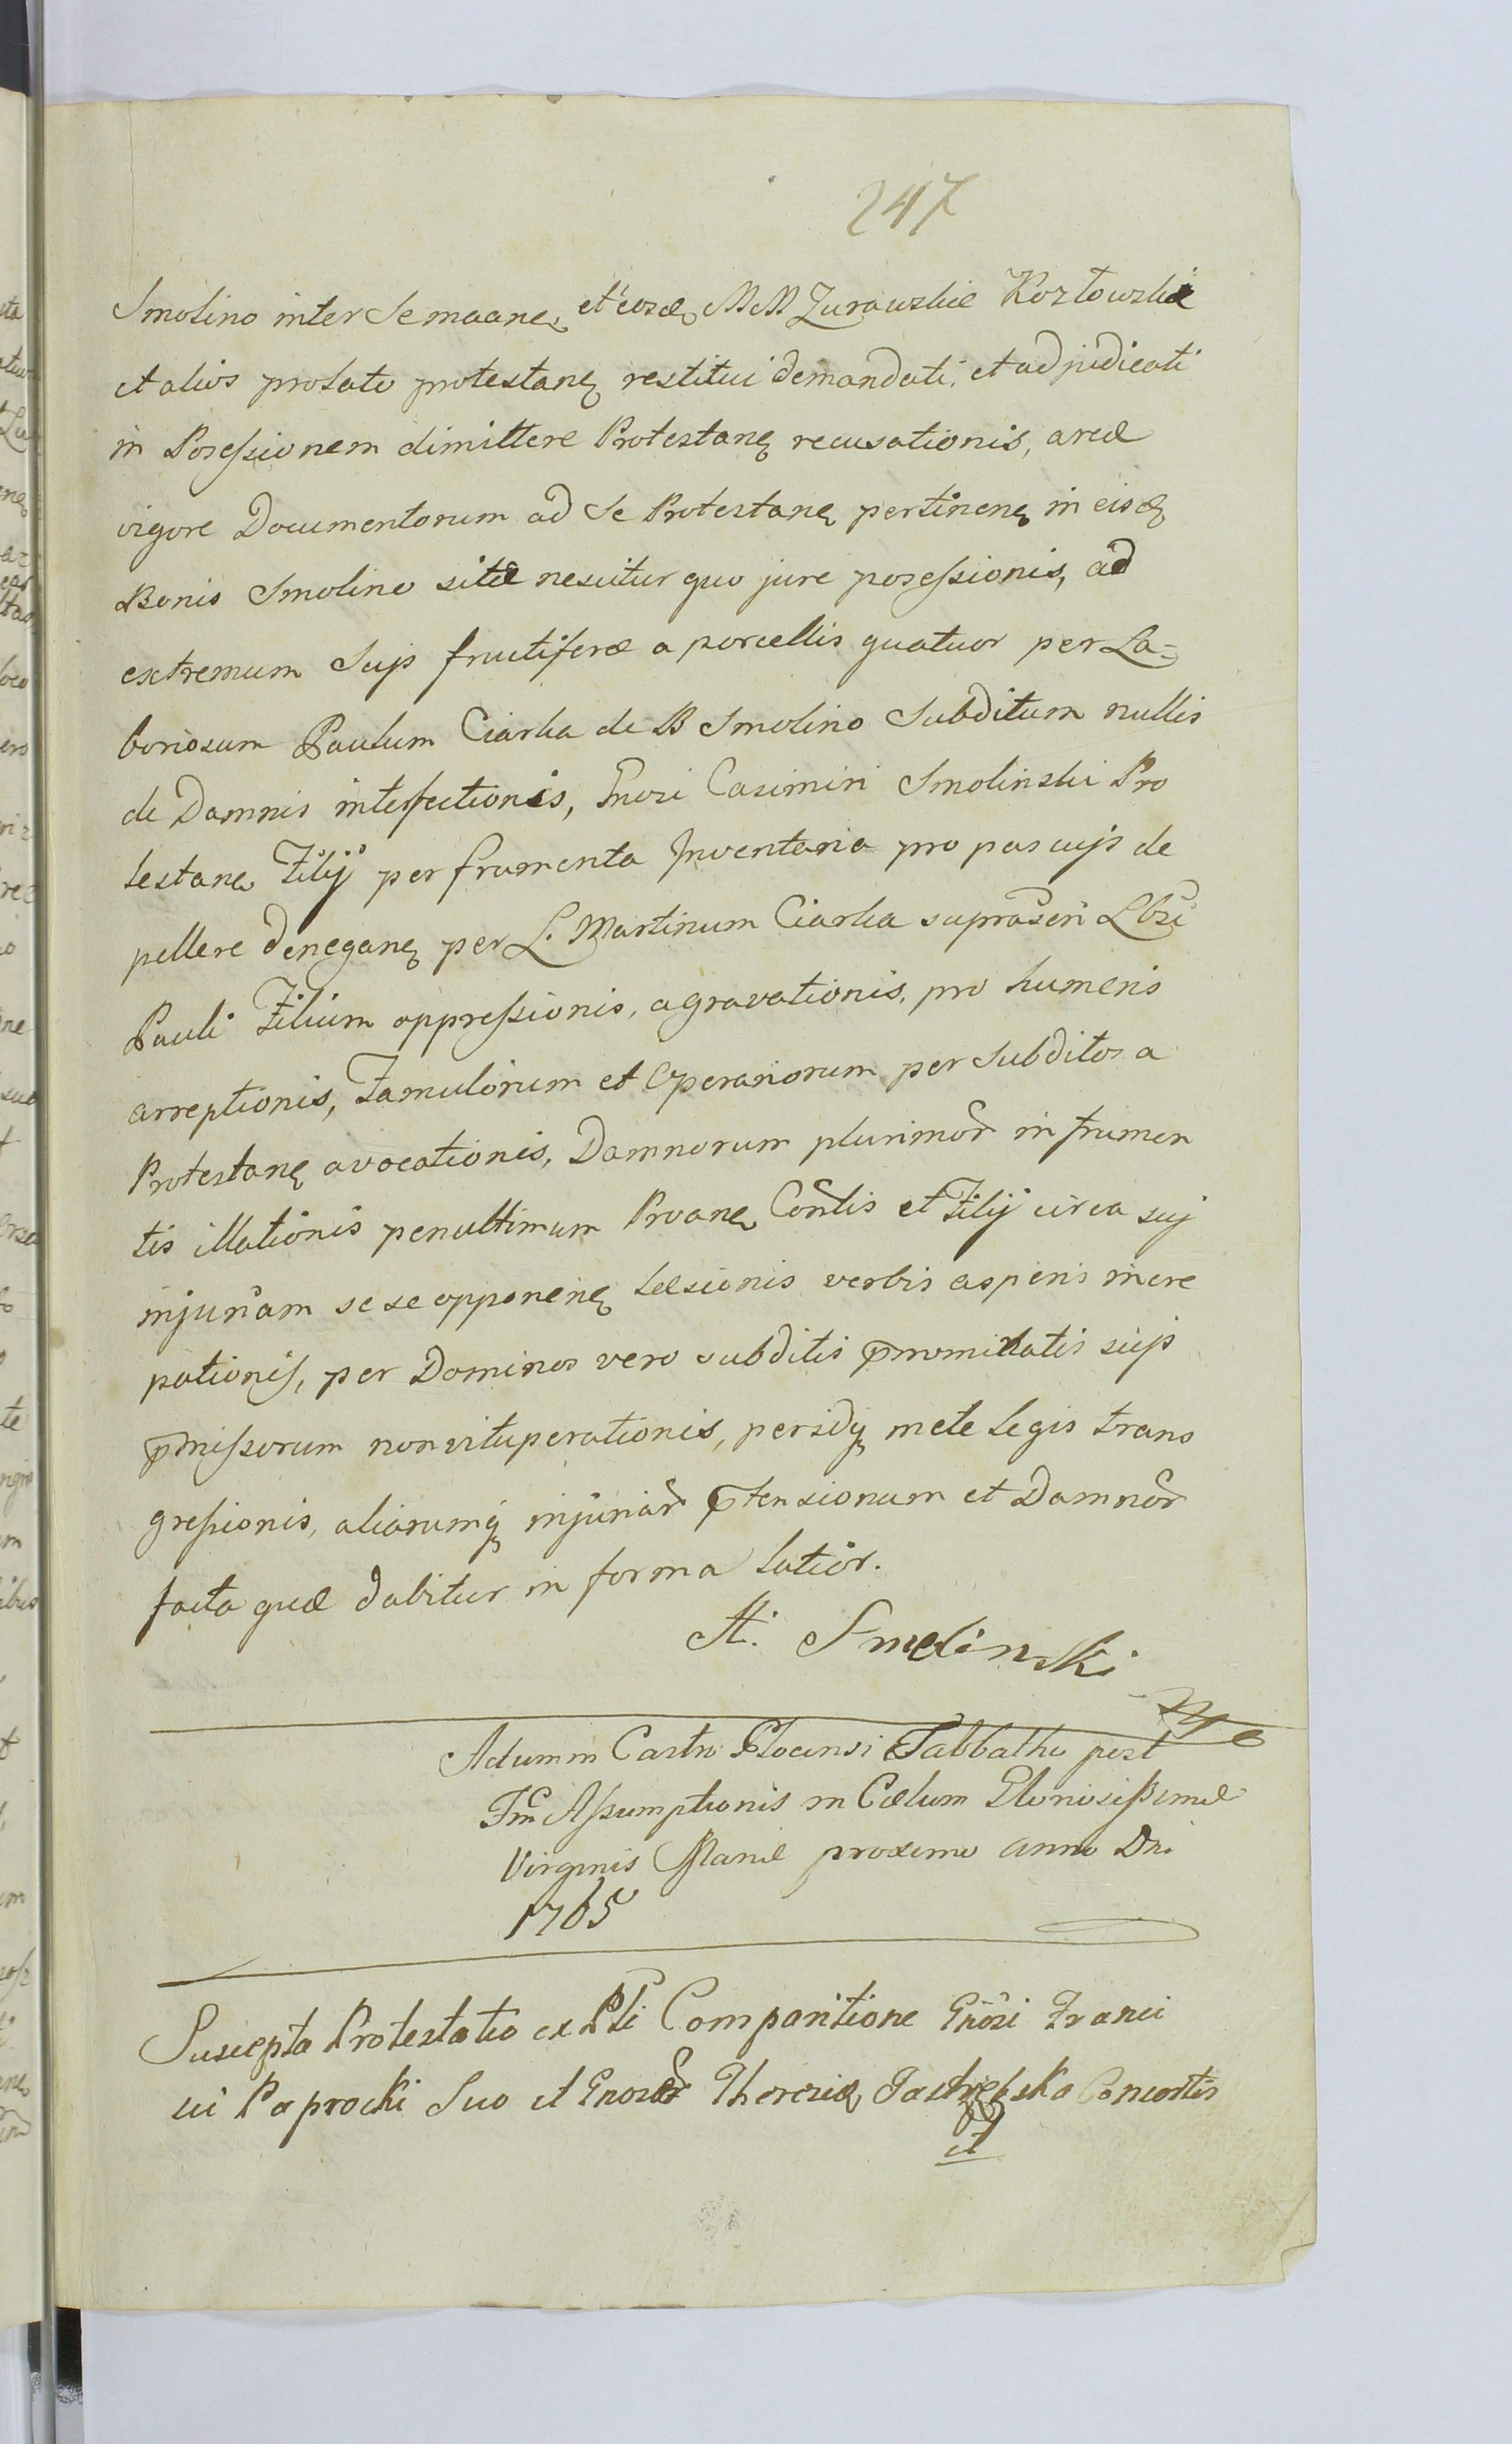 247
Smolino inter se maane, et eosd, MM Zurawskie Kozłowskie
et alios prolato protestane, restitui demandati, et adjudicati
in Posessionem dimittere Protestane, recusationis, areæ
vigore Documentorum ad se Protestane, pertinene, in eisd,
Bonis Smolino sitæ nescitur quo jure posessionis, ad
extremum Sujs fructiferæ a porcellis quatuor per La=
boriosum Paulum Ciarka de B Smolino Subditum nullis
de Damnis intefectionis, Gnosi Casimiri Smolinski Pro
testane, Filij per frumenta Inventaria pro pascujs de
pellere denegane, per L. Martinum Ciarka suprascri Lbsi
Pauli Filium oppressionis, agravationis, pro humeris
arreptionis, Famulorum et Operariorum per subditos a
Protestane, avocationis, Damnorum plurimor in frumen
tis illationis penultimum Proane, Contis et Filij circa suj
injuriam sese opponene, læsionis verbis asperis incre
pationis, per Dominos vero subditis pnominatis sujs
pmissorum non vituperationis, persidq, metæ legis trans
gressionis, aliarumq, injuriar ptensionum et Damnor
facta quæ dabitur in forma latior.
A. Smolinski
Actum in Castro Plocensi Sabbatho post
Fm Assumptionis in Cælum Gloriosissimæ
Virginis Mariæ proximo anno Dni
1765
Suscepta Protestatio ex Pti Comparitione Gnosi Franci
sci Paprocki Suo et Gnosær Theresiæ, Jastrzębska Consortis
et